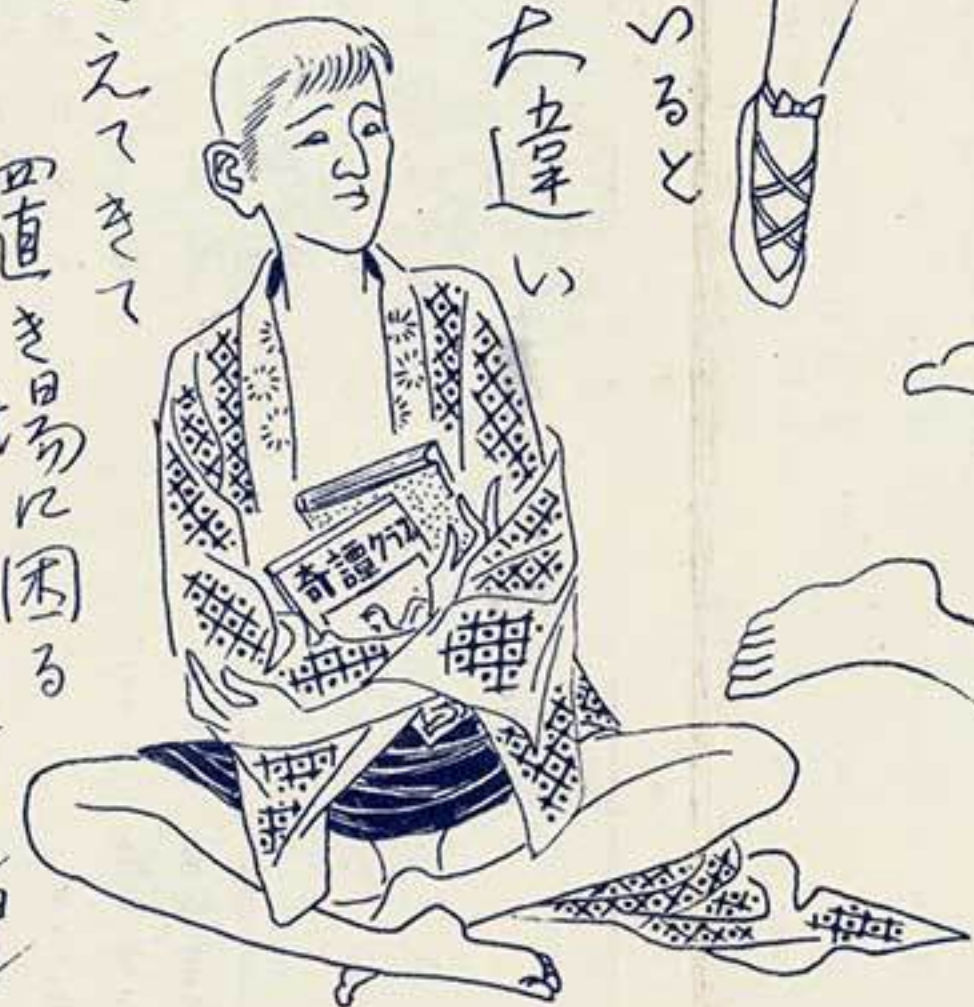 いると
大違い
えてきて
置き場に困る
奇譚クラブ